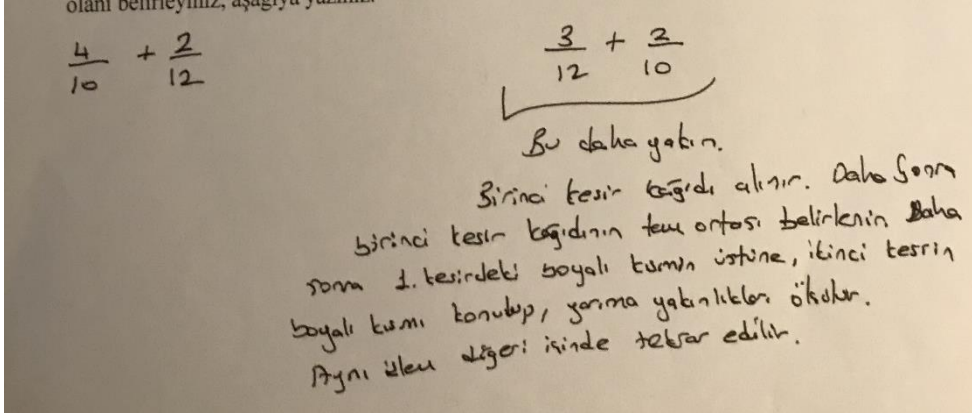 olanı belirleyiniz, aşağıya yazınız.
4/10 + 2/12
3/12 + 2/10
Bu daha yakın.
Birinci kesir kağıdı alınır. Daha Sonra
birinci kesir kağıdının tam ortası belirlenin Daha
sonra 1. kesirdeki boyalı kısmın üstüne, ikinci kesrin
boyalı kısmı konulup, yarıma yakınlıkları ölçülür.
Aynı işlem diğeri içinde tekrar edilir.